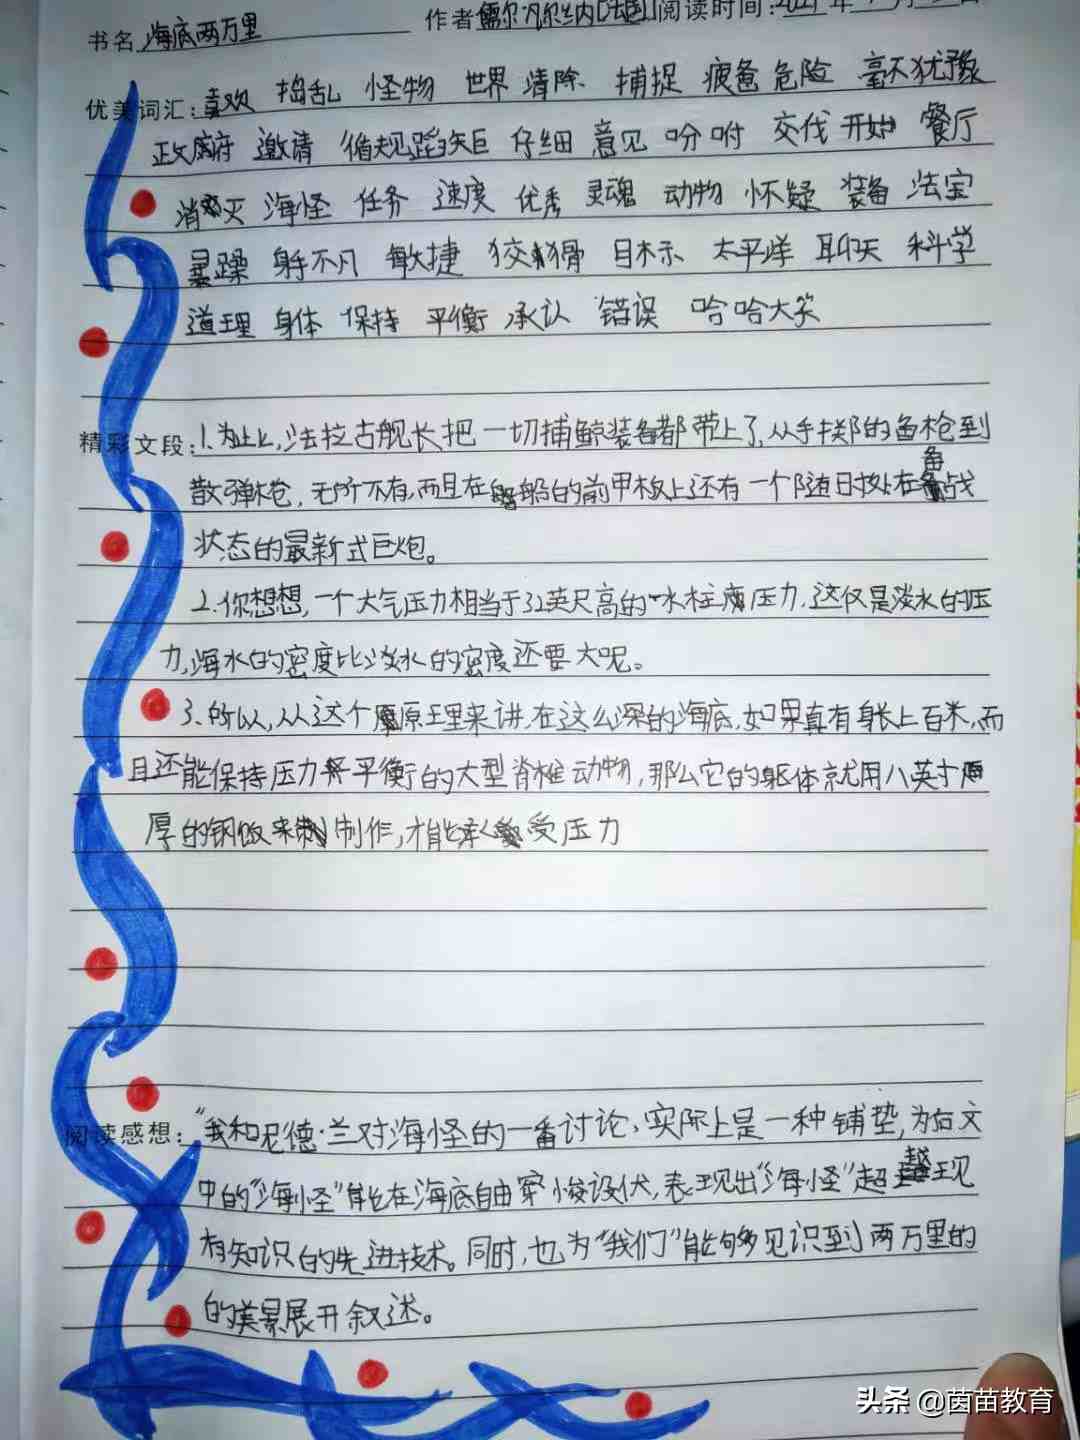 书名 海底两万里 作者 儒尔·凡尔纳[法国] 阅读时间:2021年
优美词汇: 喜欢 捣乱 怪物 世界 清除 捕捉 疲惫 危险 毫不犹豫
政府 邀请 循规蹈矩 仔细 意见 吩咐 交代 开始 餐厅
消灭 海怪 任务 速度 优秀 灵魂 动物 怀疑 装备 法宝
暴躁 身手不凡 敏捷 狡猾 目标 太平洋 聊天 科学
道理 身体 保持 平衡 承认 错误 哈哈大笑
精彩文段: 1.为此,法拉古舰长把一切捕鲸装备都带上了,从手掷的鱼枪到
散弹枪,无所不有,而且在船的前甲板上还有一个随时处在备战
状态的最新式巨炮。
2.你想想,一个大气压力相当于32英尺高的水柱压力,这仅是淡水的压
力,海水的密度比淡水的密度还要大呢。
3.所以,从这个原理来讲,在这么深的海底,如果真有身长上百米,而
且还能保持压力平衡的大型脊椎动物,那么它的躯体就用八英寸
厚的钢板来制作,才能承受压力
阅读感想: "我和尼德·兰对海怪的一番讨论,实际上是一种铺垫,为后文
中的"海怪"能在海底自由穿梭设伏,表现出"海怪"超越现
有知识的先进技术。同时,也为"我们"能够见识到两万里的
的美景展开叙述。
头条 @茵苗教育